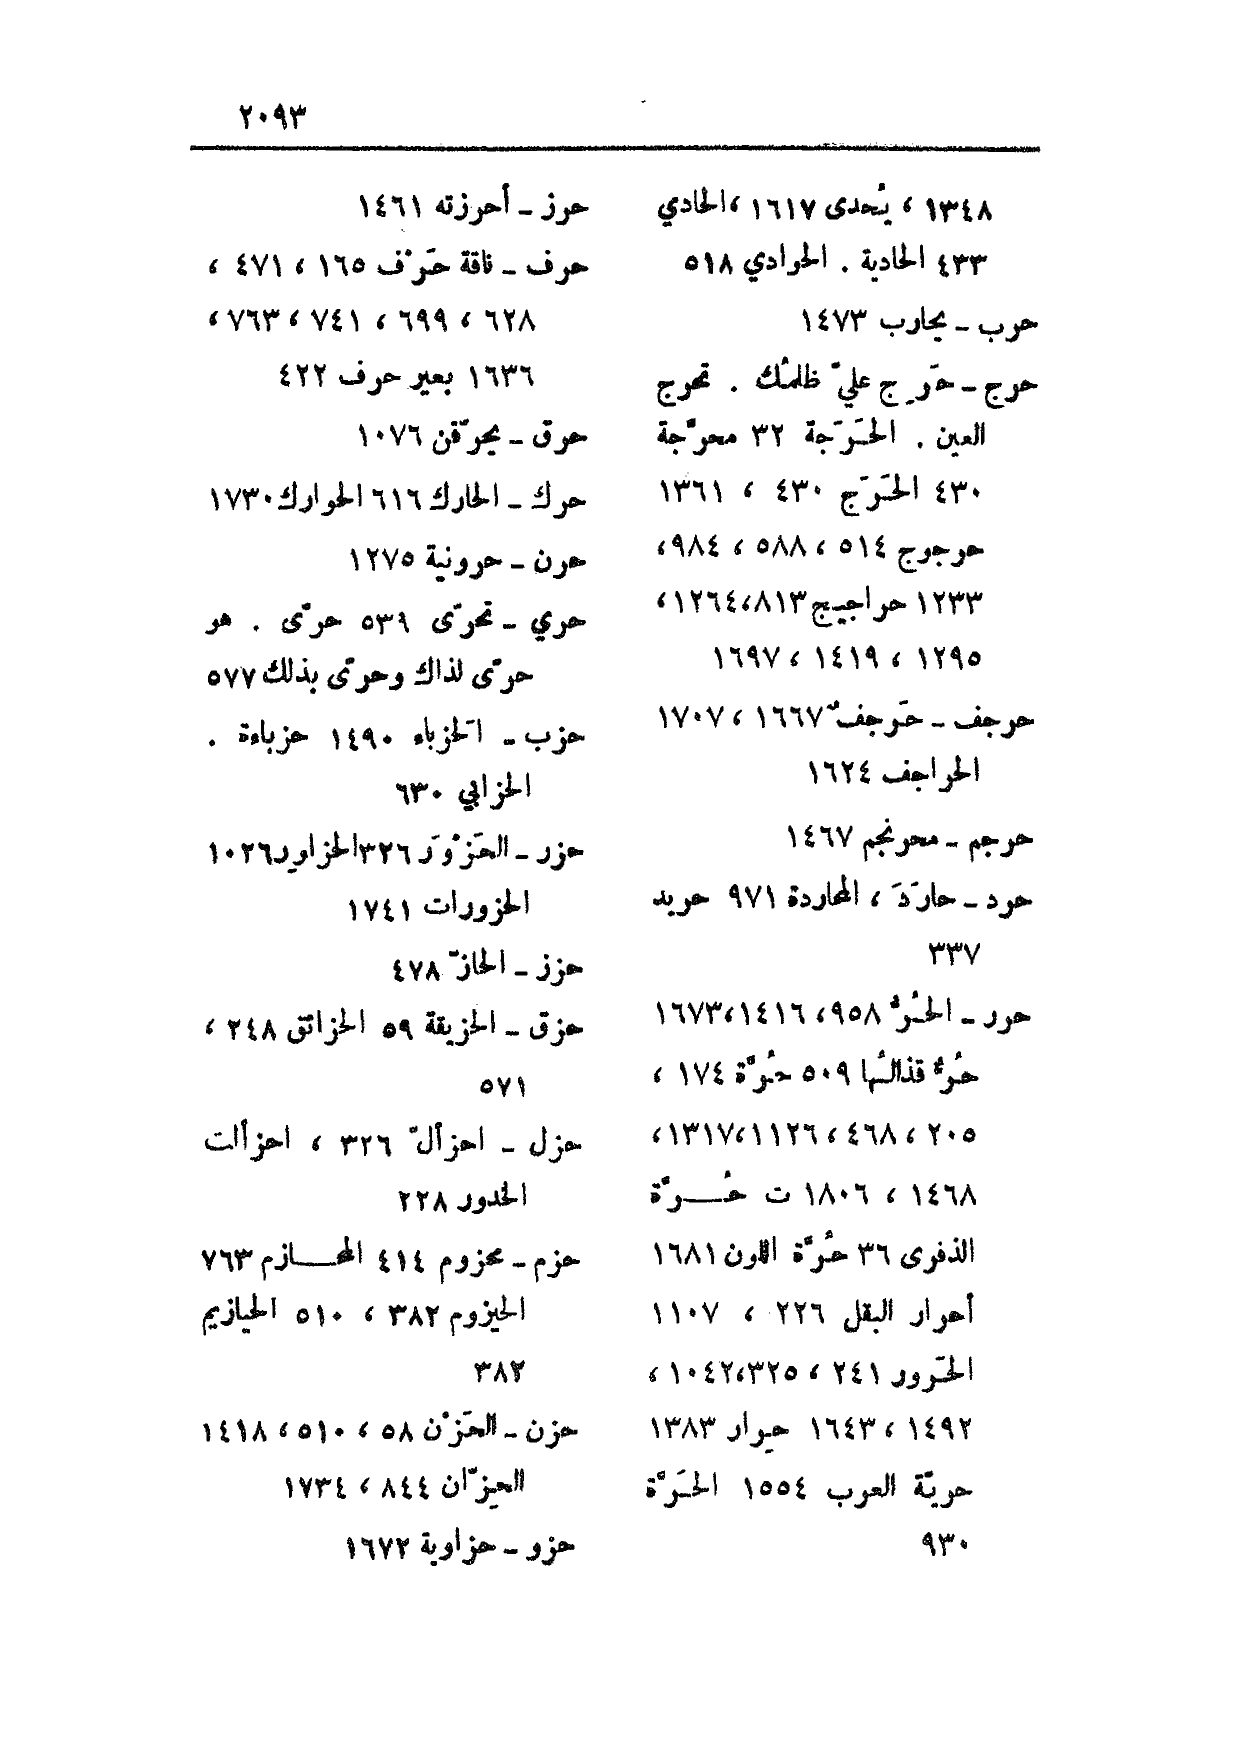 ٢٠٩٣
١٣٤٨ ، يُحدى ١٦١٧ ،الحادي
٤٣٣ الحادية . الحوادي ٥١٨
حرب – يحارب ١٤٧٣
حرج – حَرِج عليّ ظلمُك . تحرج
العين . الحَرَجة ٣٢ محرّجة
٤٣٠ الحَرَج ٤٣٠ ، ١٣٦١
حرجوج ٥١٤ ، ٥٨٨ ، ٩٨٤،
١٢٣٣ حراجيج ٨١٣،١٢٦٤،
١٢٩٥ ، ١٤١٩ ، ١٦٩٧
حرجف – حَرجفٌ ١٦٦٧ ، ١٧٠٧
الحراجف ١٦٢٤
حرجم – محرنجم ١٤٦٧
حرد – حارَدَ ، المحاردة ٩٧١ حريد
٣٣٧
حرر – الحُرُّ ٩٥٨، ١٤١٦،١٦٧٣
حُرٌّ قذالُها ٥٠٩ حُرَّة ١٧٤ ،
٢٠٥ ، ٤٦٨ ، ١١٢٦،١٣١٧،
١٤٦٨ ، ١٨٠٦ ت حُــرَّة
الذفرى ٣٦ حُرَّة اللون ١٦٨١
أحرار البقل ٢٢٦ ، ١١٠٧
الحَرور ٢٤١ ، ٣٢٥،١٠٤٢ ،
١٤٩٢ ، ١٦٤٣ حِرار ١٣٨٣
حريّة العرب ١٥٥٤ الحَرَّة
٩٣٠
حرز – أحرزته ١٤٦١
حرف – ناقة حَرْف ١٦٥ ، ٤٧١ ،
٦٢٨ ، ٦٩٩ ، ٧٤١ ، ٧٦٣ ،
١٦٣٦ بعير حرف ٤٢٢
حرق – يحرّقن ١٠٧٦
حرك – الحارك ٦١٦ الحوارك ١٧٣٠
حرن – حرونية ١٢٧٥
حري – تحرّى ٥٣٩ حرّى . هو
حرّى لذاك وحرّى بذلك ٥٧٧
حزب – الحَزباء ١٤٩٠ حزباءة .
الحزابي ٦٣٠
حزر – الحَزْوَر ٣٢٦ الحزاور ١٠٢٦
الحزورات ١٧٤١
حزز – الحازّ ٤٧٨
حزق – الحزيقة ٥٩ الحزائق ٢٤٨ ،
٥٧١
حزل – احزألّ ٣٢٦ ، احزألت
الخدور ٢٢٨
حزم – محزوم ٤١٤ المحـــازم ٧٦٣
الحيزوم ٣٨٢ ، ٥١٠ الحيازيم
٣٨٢
حزن – الحَزْن ٥٨ ، ٥١٠ ، ١٤١٨
الحِزّان ٨٤٤ ، ١٧٣٤
حزو – حزاوية ١٦٧٢